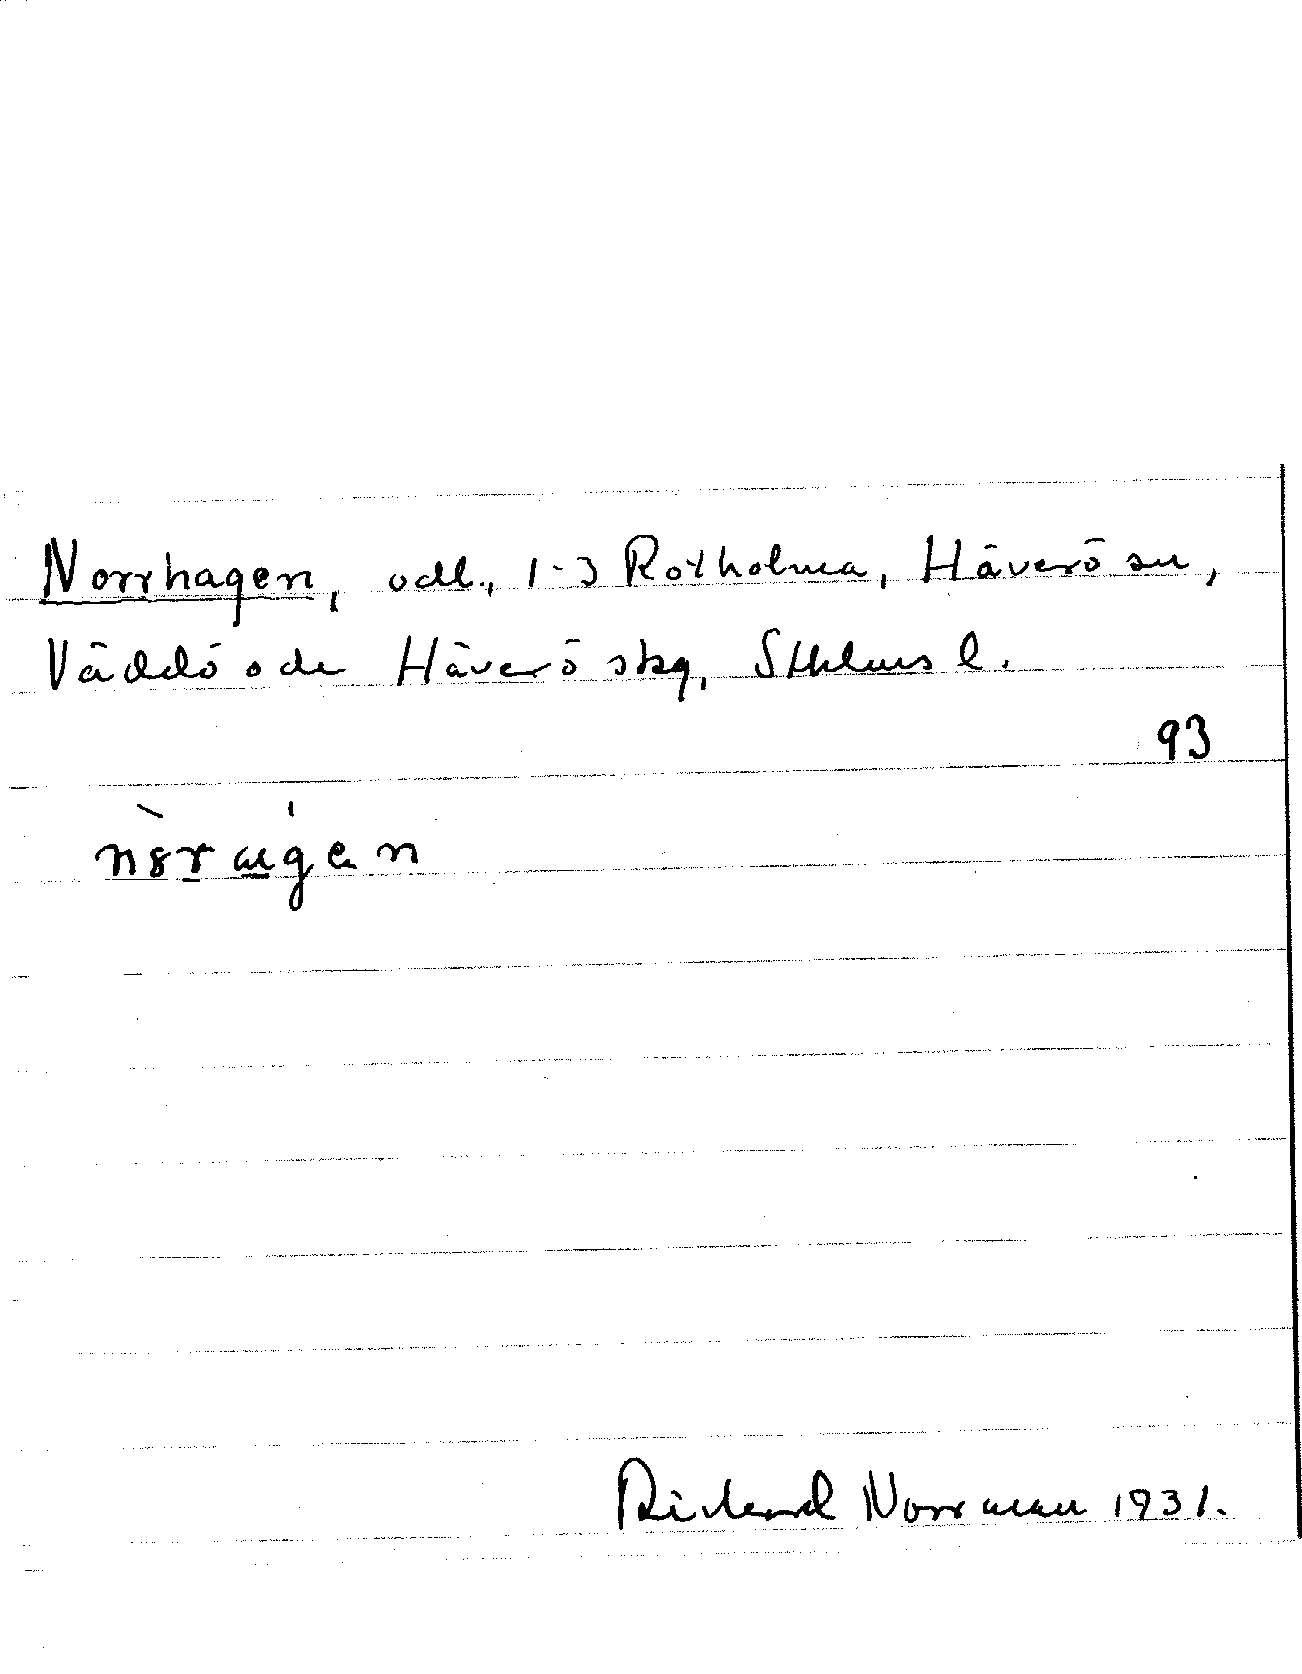 Norrhagen, odl., 1-3 Rotholma, Häverö sn,
Väddö och Häverö skg, Sthlms l.
93
nòrɑgen
Rickard Norrman 1931.